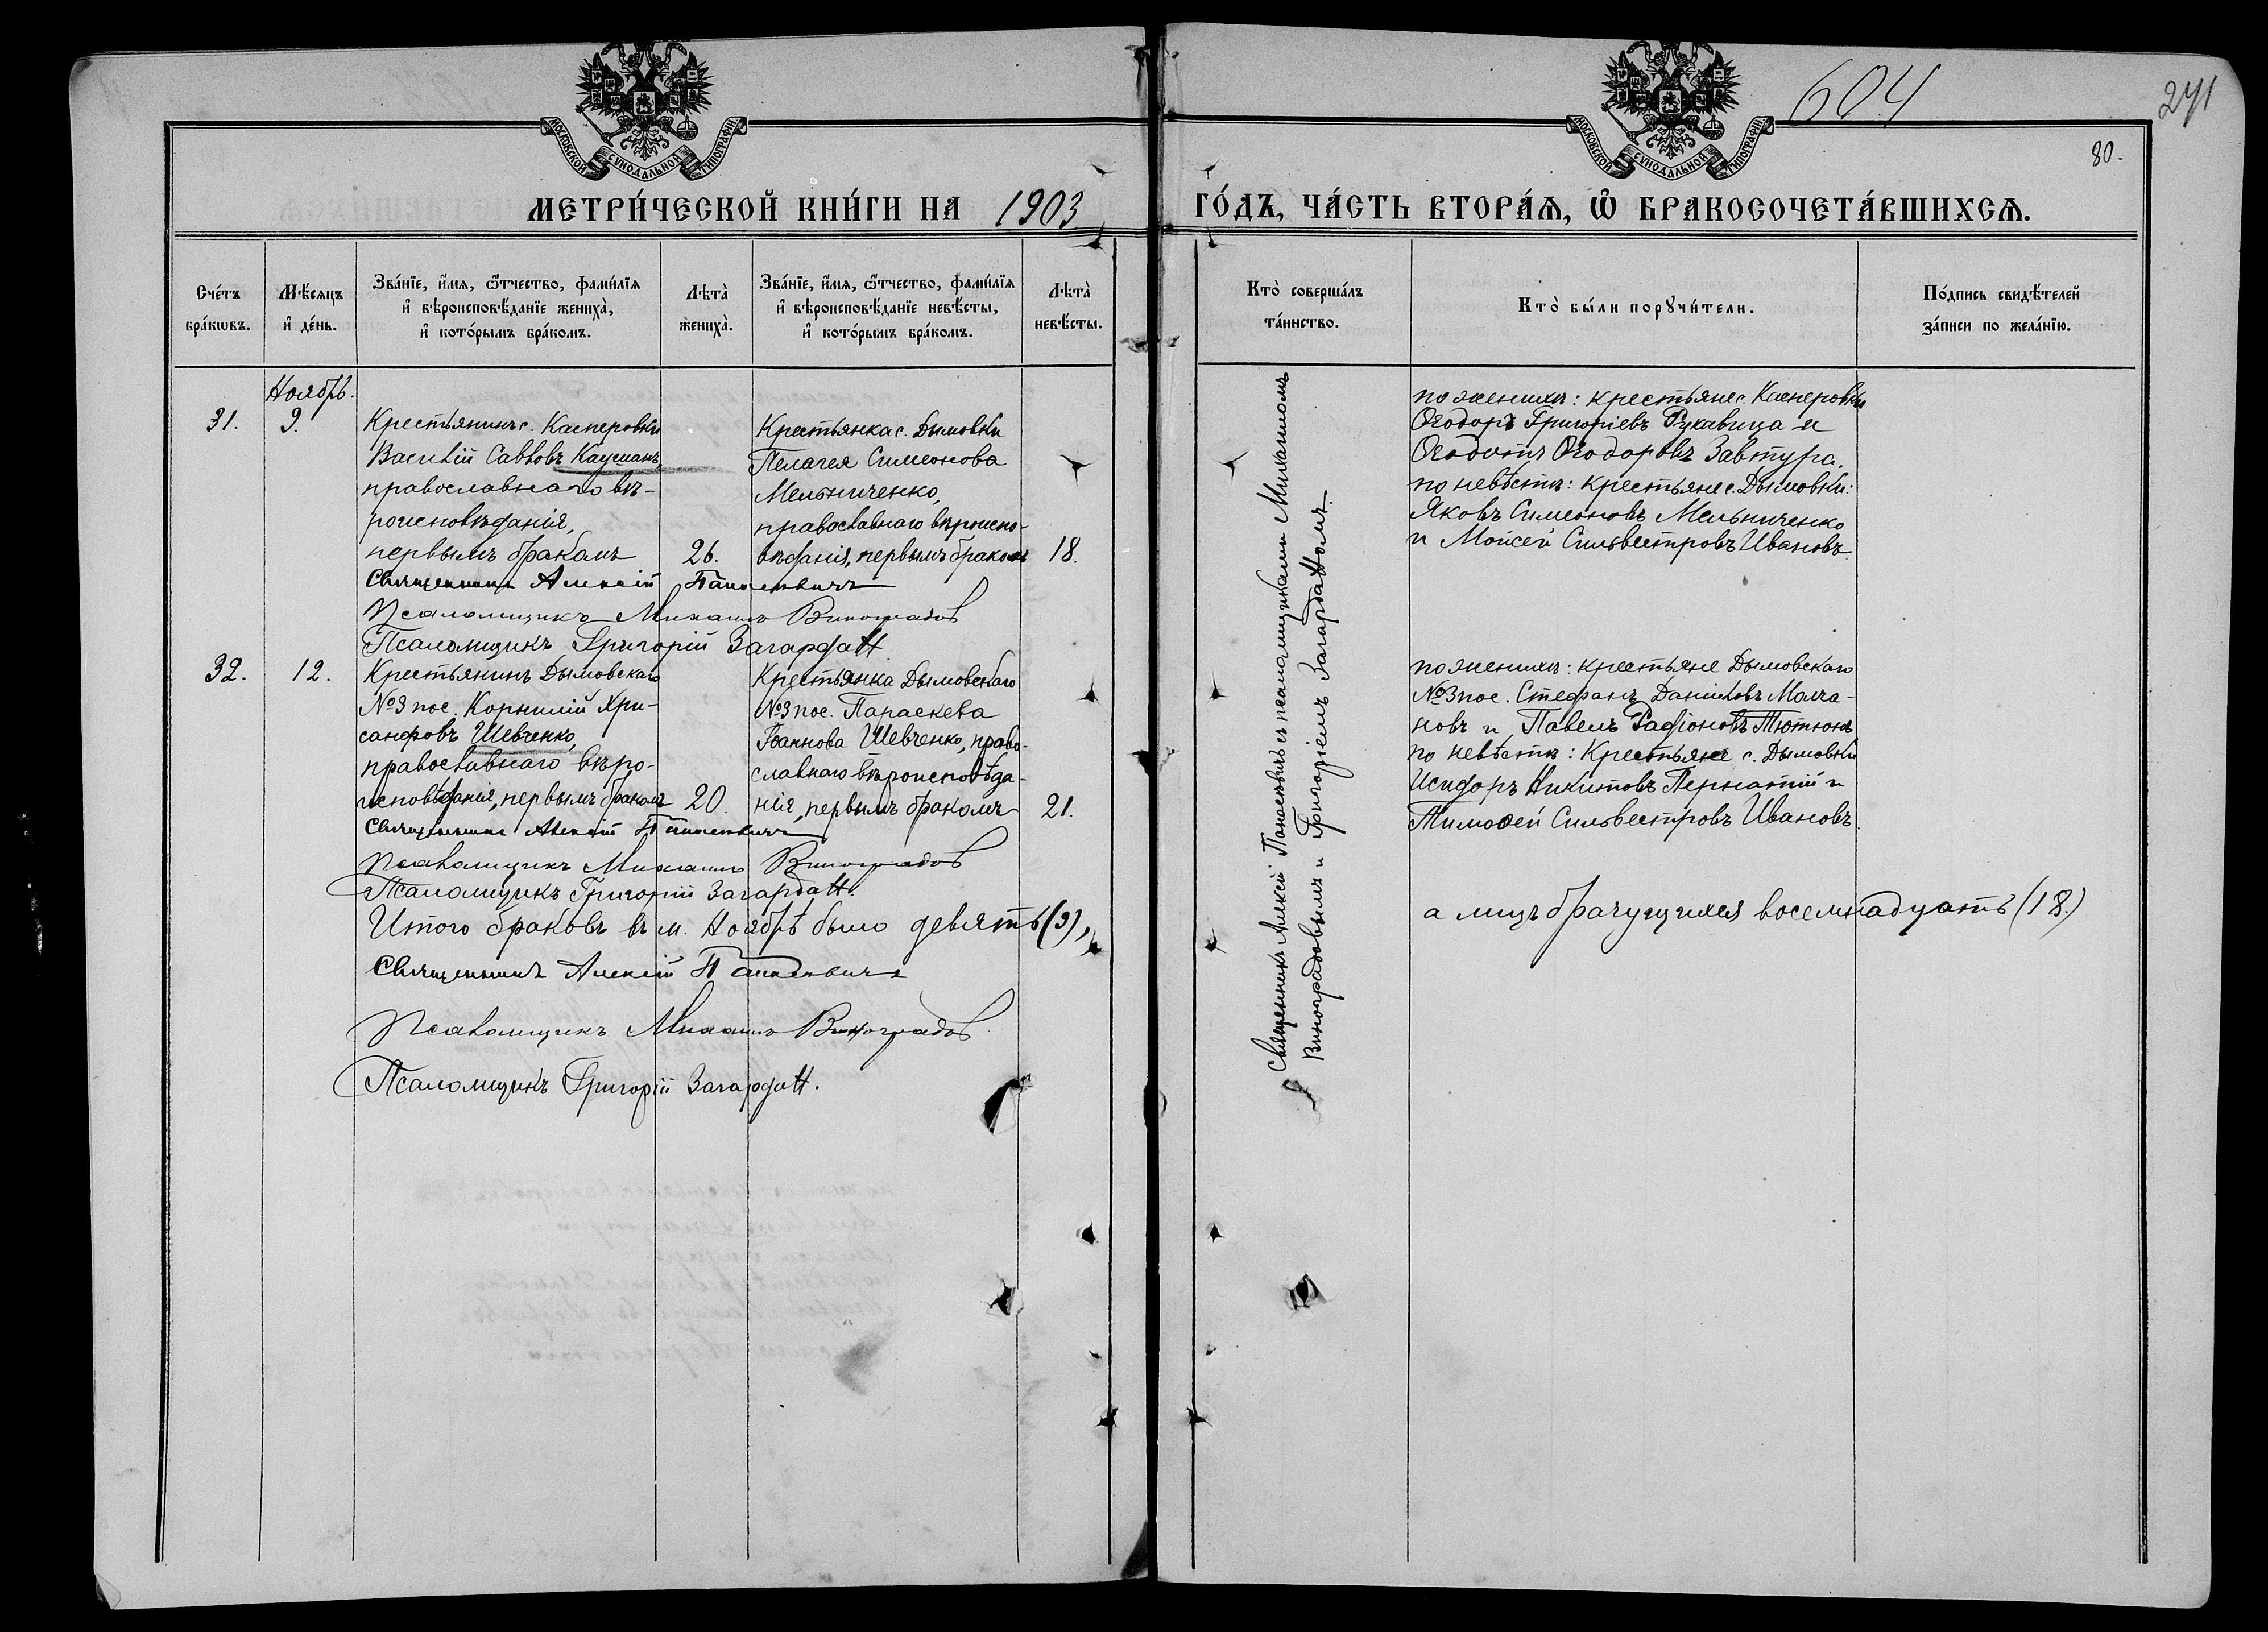 МОСКОВСКОЙ СѴНОДАЛЬНОЙ ТИПОГРАФІИ
МОСКОВСКОЙ СѴНОДАЛЬНОЙ ТИПОГРАФІИ
604
241
80.
МЕТРИ́ЧЕСКОЙ КНИ́ГИ НА 1903 ГО́ДЪ, ЧА́СТЬ ВТОРА́Я, Ѽ БРАКОСОЧЕТА́ВШИХСЯ.
Сче́тъ
бра́кѡвъ.
Мѣ́сяцъ
и҆ де́нь.
Зва́нїе, и҆́мя, ѻ҆́тчество, фами́лїя
и҆ вѣроисповѣ́данїе жениха̀,
и҆ кото́рымъ бра́комъ.
Лѣта̀
жениха̀.
Зва́нїе, и҆́мя, ѻ҆́тчество, фами́лїя
и҆ вѣроисповѣ́данїе невѣ́сты,
и҆ кото́рымъ бра́комъ.
Лѣта̀
невѣ́сты.
Кто̀ соверша́лъ
та́инство.
Кто̀ бы́ли порꙋчи́тели.
По́дпись свидѣ́телей
за́писи по жела́нїю.
Ноябрь.
31.
9.
Крестьянинъ с. Касперовки
Василій Савовъ Каушанъ,
православнаго вѣ-
роисповѣданія,
первымъ бракомъ
26.
Крестьянка с. Дымовки
Пелагея Симеонова
Мельниченко,
православнаго вѣроиспо-
вѣданія, первымъ бракомъ
18.
Священникъ Алексій Панасевичъ
Псаломщикъ Михаилъ Виноградовъ
Псаломщикъ Григорій Загардан
по женихѣ: крестьяне с. Касперовки
Ѳеодоръ Григоріевъ Рукавица и
Ѳеодотъ Ѳеодоровъ Завтура.
по невѣстѣ: крестьяне с. Дымовки:
Яковъ Симеоновъ Мельниченко
и Моисей Сильвестровъ Ивановъ
32.
12.
Крестьянинъ Дымовскаго
№3 пос. Корнилій Хри-
санфовъ Шевченко,
православнаго вѣро-
исповѣданія, первымъ бракомъ
20.
Крестьянка Дымовскаго
№3 пос. Параскева
Іоаннова Шевченко, право-
славнаго вѣроисповѣда-
нія, первымъ бракомъ
21.
Священникъ Алексій Панасевичъ
Псаломщикъ Михаилъ Виноградовъ
Псаломщикъ Григорій Загардан.
по женихѣ: крестьяне Дымовскаго
№3 пос. Стефанъ Даниловъ Молча-
новъ и Павелъ Радіоновъ Тютюнъ
по невѣстѣ: Крестьяне с. Дымовки
Исидоръ Никитовъ Пернатій и
Тимоѳей Сильвестровъ Ивановъ.
Священникъ Алексій Панасевичъ съ псаломщиками Михаиломъ
Виноградовымъ и Григоріемъ Загарданомъ.
Итого браковъ въ м. Ноябрѣ было девять (9),
а лицъ брачущихся восемнадцать (18.)
Священникъ Алексій Панасевичъ
Псаломщикъ Михаилъ Виноградовъ
Псаломщикъ Григорій Загардан.